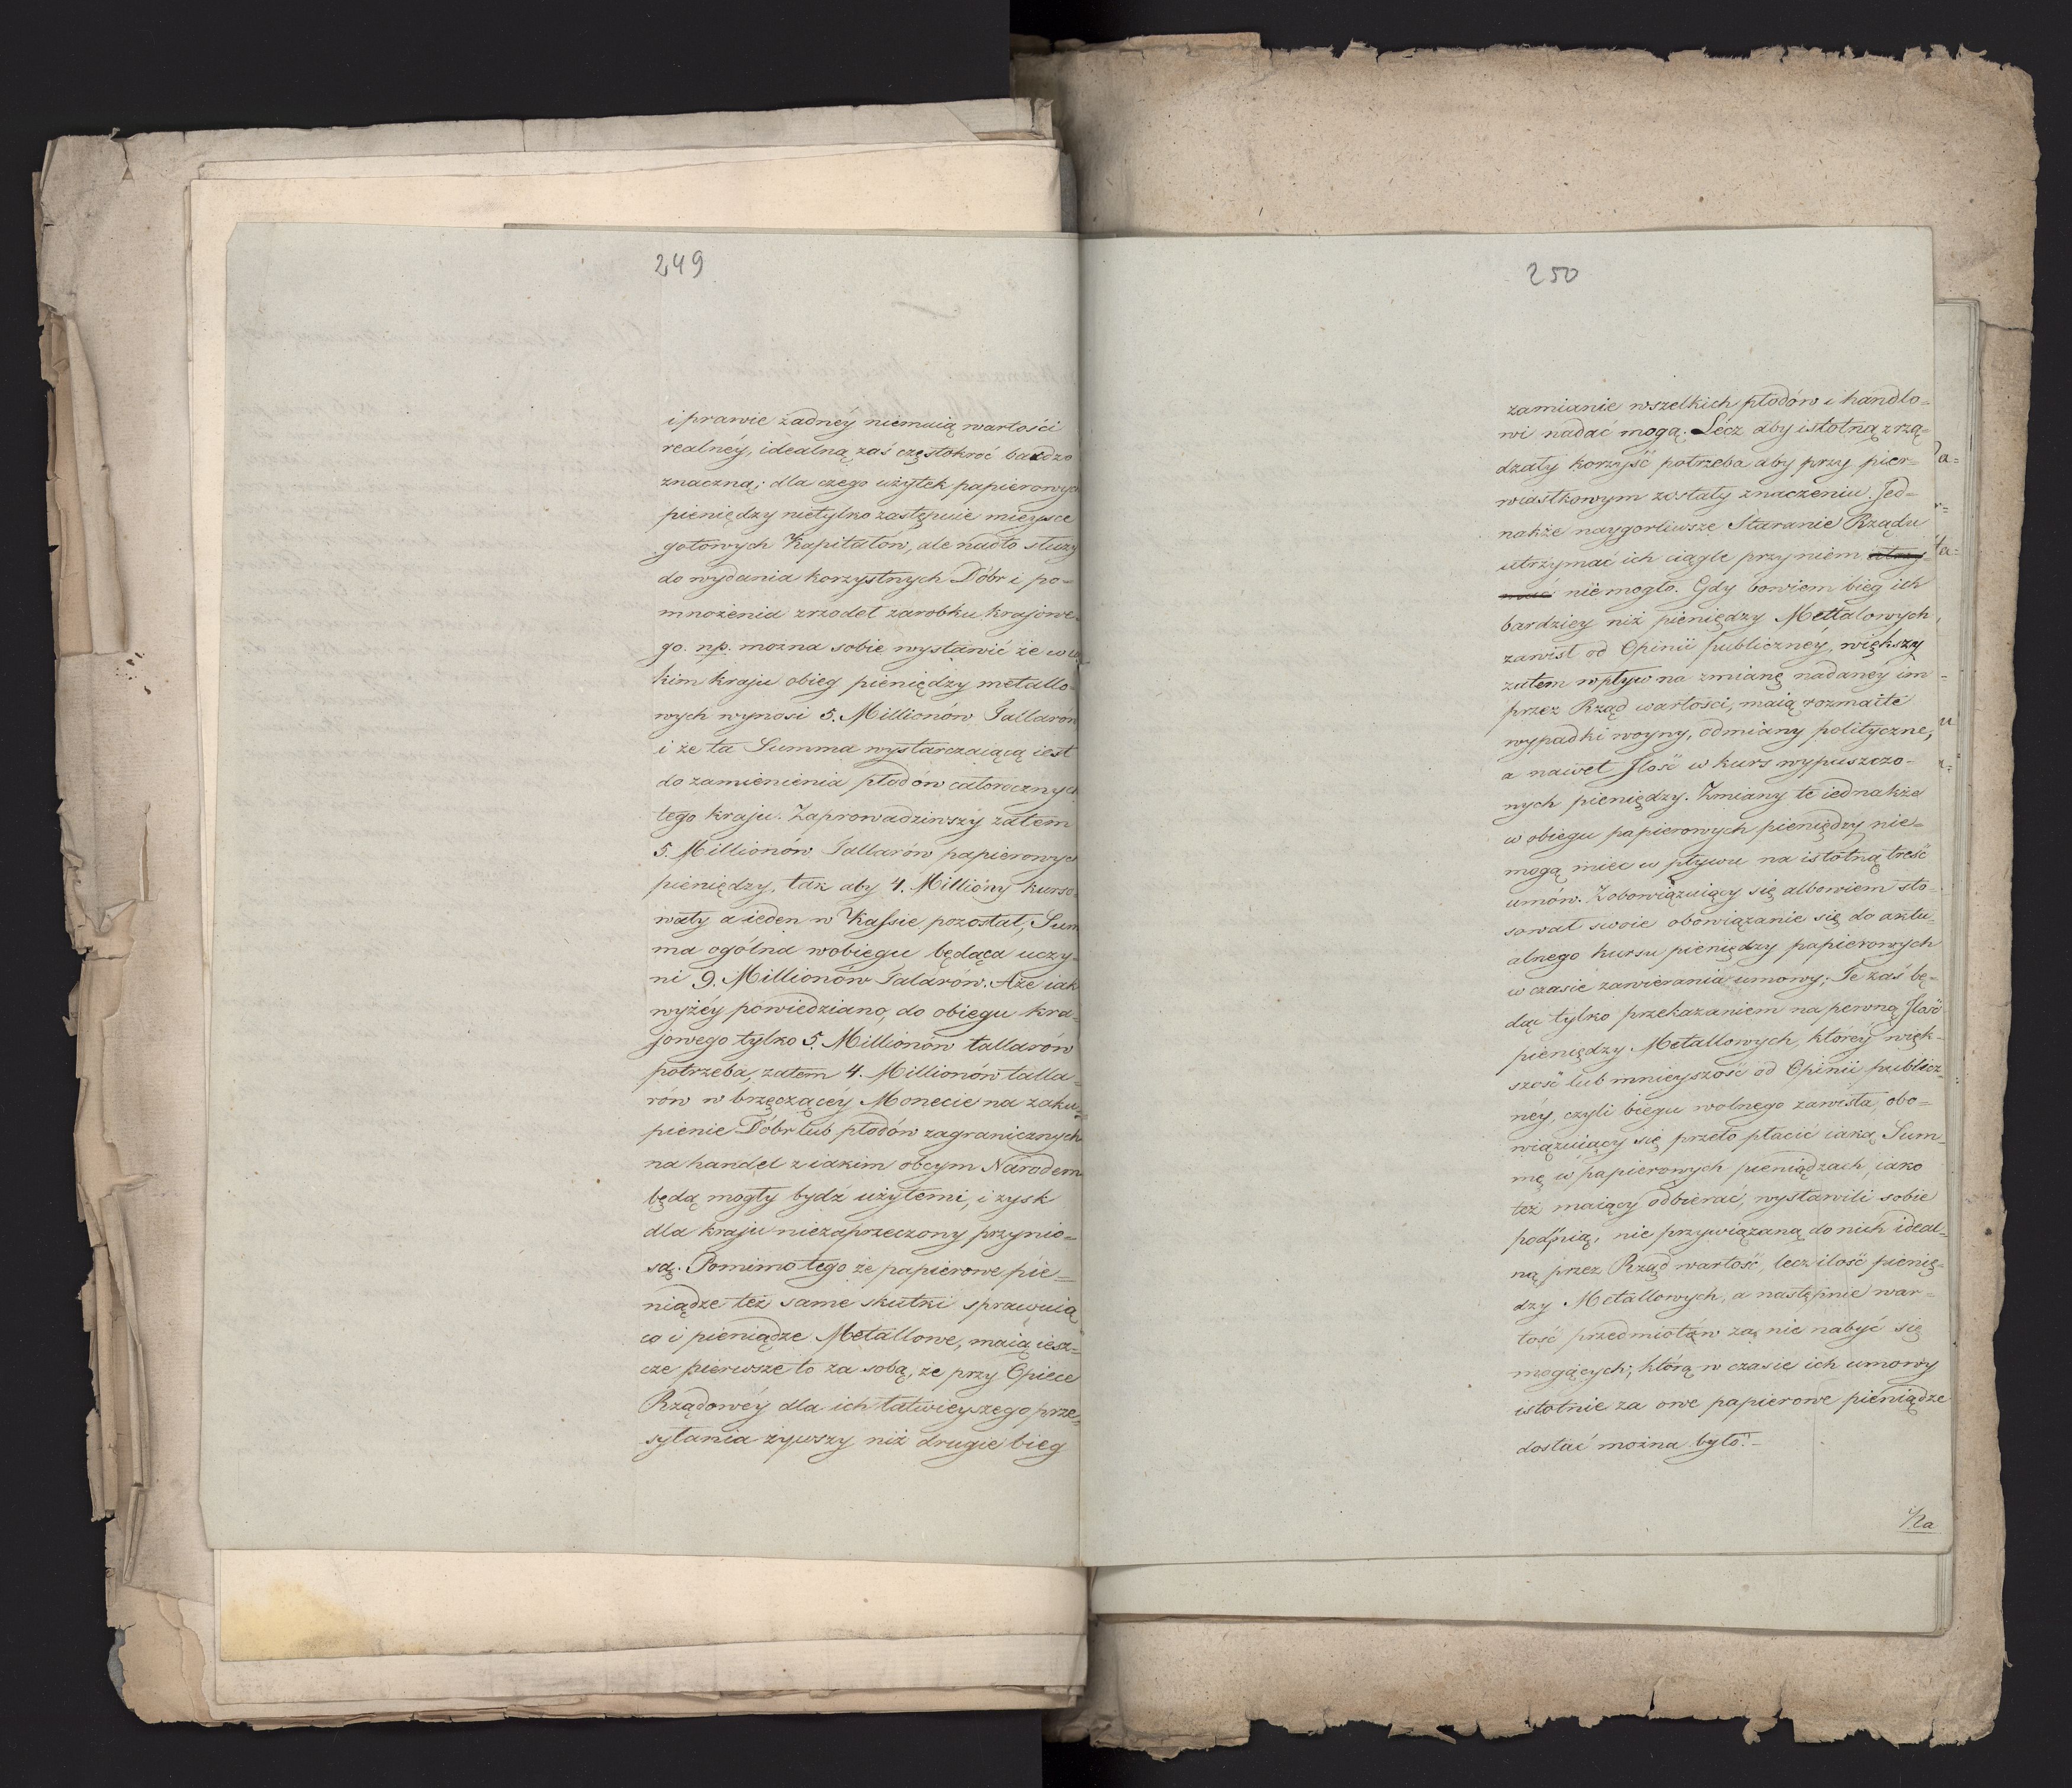 249
i prawie żadnéy niemaią wartości
realnéy, idealną zaś częstokroć bardzo
znaczną; dla czego użytek papierowych
pieniędzy nietylko zastępuie mieysce
gotowych Kapitałow, ale nadto służy
do wydania korzystnych Dóbr i po=
mnożenia zrzodeł zarobku krajowe=
go. np. można sobie wystawić że w ia
kim kraju obieg pieniędzy metallo=
wych wynosi 5. Millionów Tallarów
i że ta Summa wystarczaiącą iest
do zamienienia płodów całorocznych
tego kraju. Zaprowadziwszy zatem
5. Millionów Tallarów papierowych
pieniędzy, tak aby 4. Millióny kurso=
wały a ieden w Kassie pozostał, Sum
ma ogólna w obiegu będąca uczy=
ni 9. Millionów Talarów. Aże iak
wyżéy powiedziano, do obiegu kra=
jowego tylko 5. Millionów tallarów
potrzeba, zatem 4. Millionów talla=
rów w brzęczącéy Monecie na zaku=
pienie Dóbr lub płodów zagranicznych
na handel z iakim obcym Narodem
będą mogły bydź użytemi, i zysk
dla kraju niezaprzeczony przynio=
są. Pomimo tego że papierowe pie=
niądze też same skutki sprawuią
co i pieniądze Metallowe, maią iesz=
cze pierwsze to za sobą, że przy Opiece
Rządowéy dla ich łatwieyszego prze=
syłania żywszy niż drugie bieg
250
zamianie wszelkich płodów i handlo=
wi nadać mogą. Lécz aby istotną zrzą=
dzały korzyść potrzeba aby przy pier=
wiastkowym zostały znaczeniu. Jed=
nakże naygorliwsze Staranie Rządu
utrzymać ich ciągle przy niem
niemogło. Gdy bowiem bieg ich
bardziey niż pieniędzy Mettalowych
zawisł od Opinii publicznéy, większy
zatem wpływ na zmianę nadanéy im
przez Rząd wartości, maią rozmaite
wypadki woyny, odmiany polityczne,
a nawet Jlość w kurs wypuszczo=
nych pieniędzy. Zmiany te iednakże
w obiegu papierowych pieniędzy nie=
mogą mieć w pływu na istotną treść
umów. Zobowiązuiący się albowiem sto=
sował swoie obowiązanie się do aktu=
alnego kursu pieniędzy papierowych
w czasie zawierania umowy; Te zaś bę=
dąc tylko przekazaniem na pewną Jlość
pieniędzy Metallowych, któréy więk=
szość lub mnieyszość od Opinii publicz=
néy, czyli biegu wolnego zawisła, obo=
wiązuiący się przeto płacić iaką Sum=
mę w papierowych pieniądzach, iako
też maiący odbierać, wystawili sobie
pod nią, nie przywiązaną do nich ideal=
ną przez Rząd wartość, lecz ilość pienię=
dzy Metallowych, a następnie war=
tość przedmiotów za nie nabyć się
mogących; którą w czasie ich umowy
istotnie za owe papierowe pieniądze
dostać można było.
Na